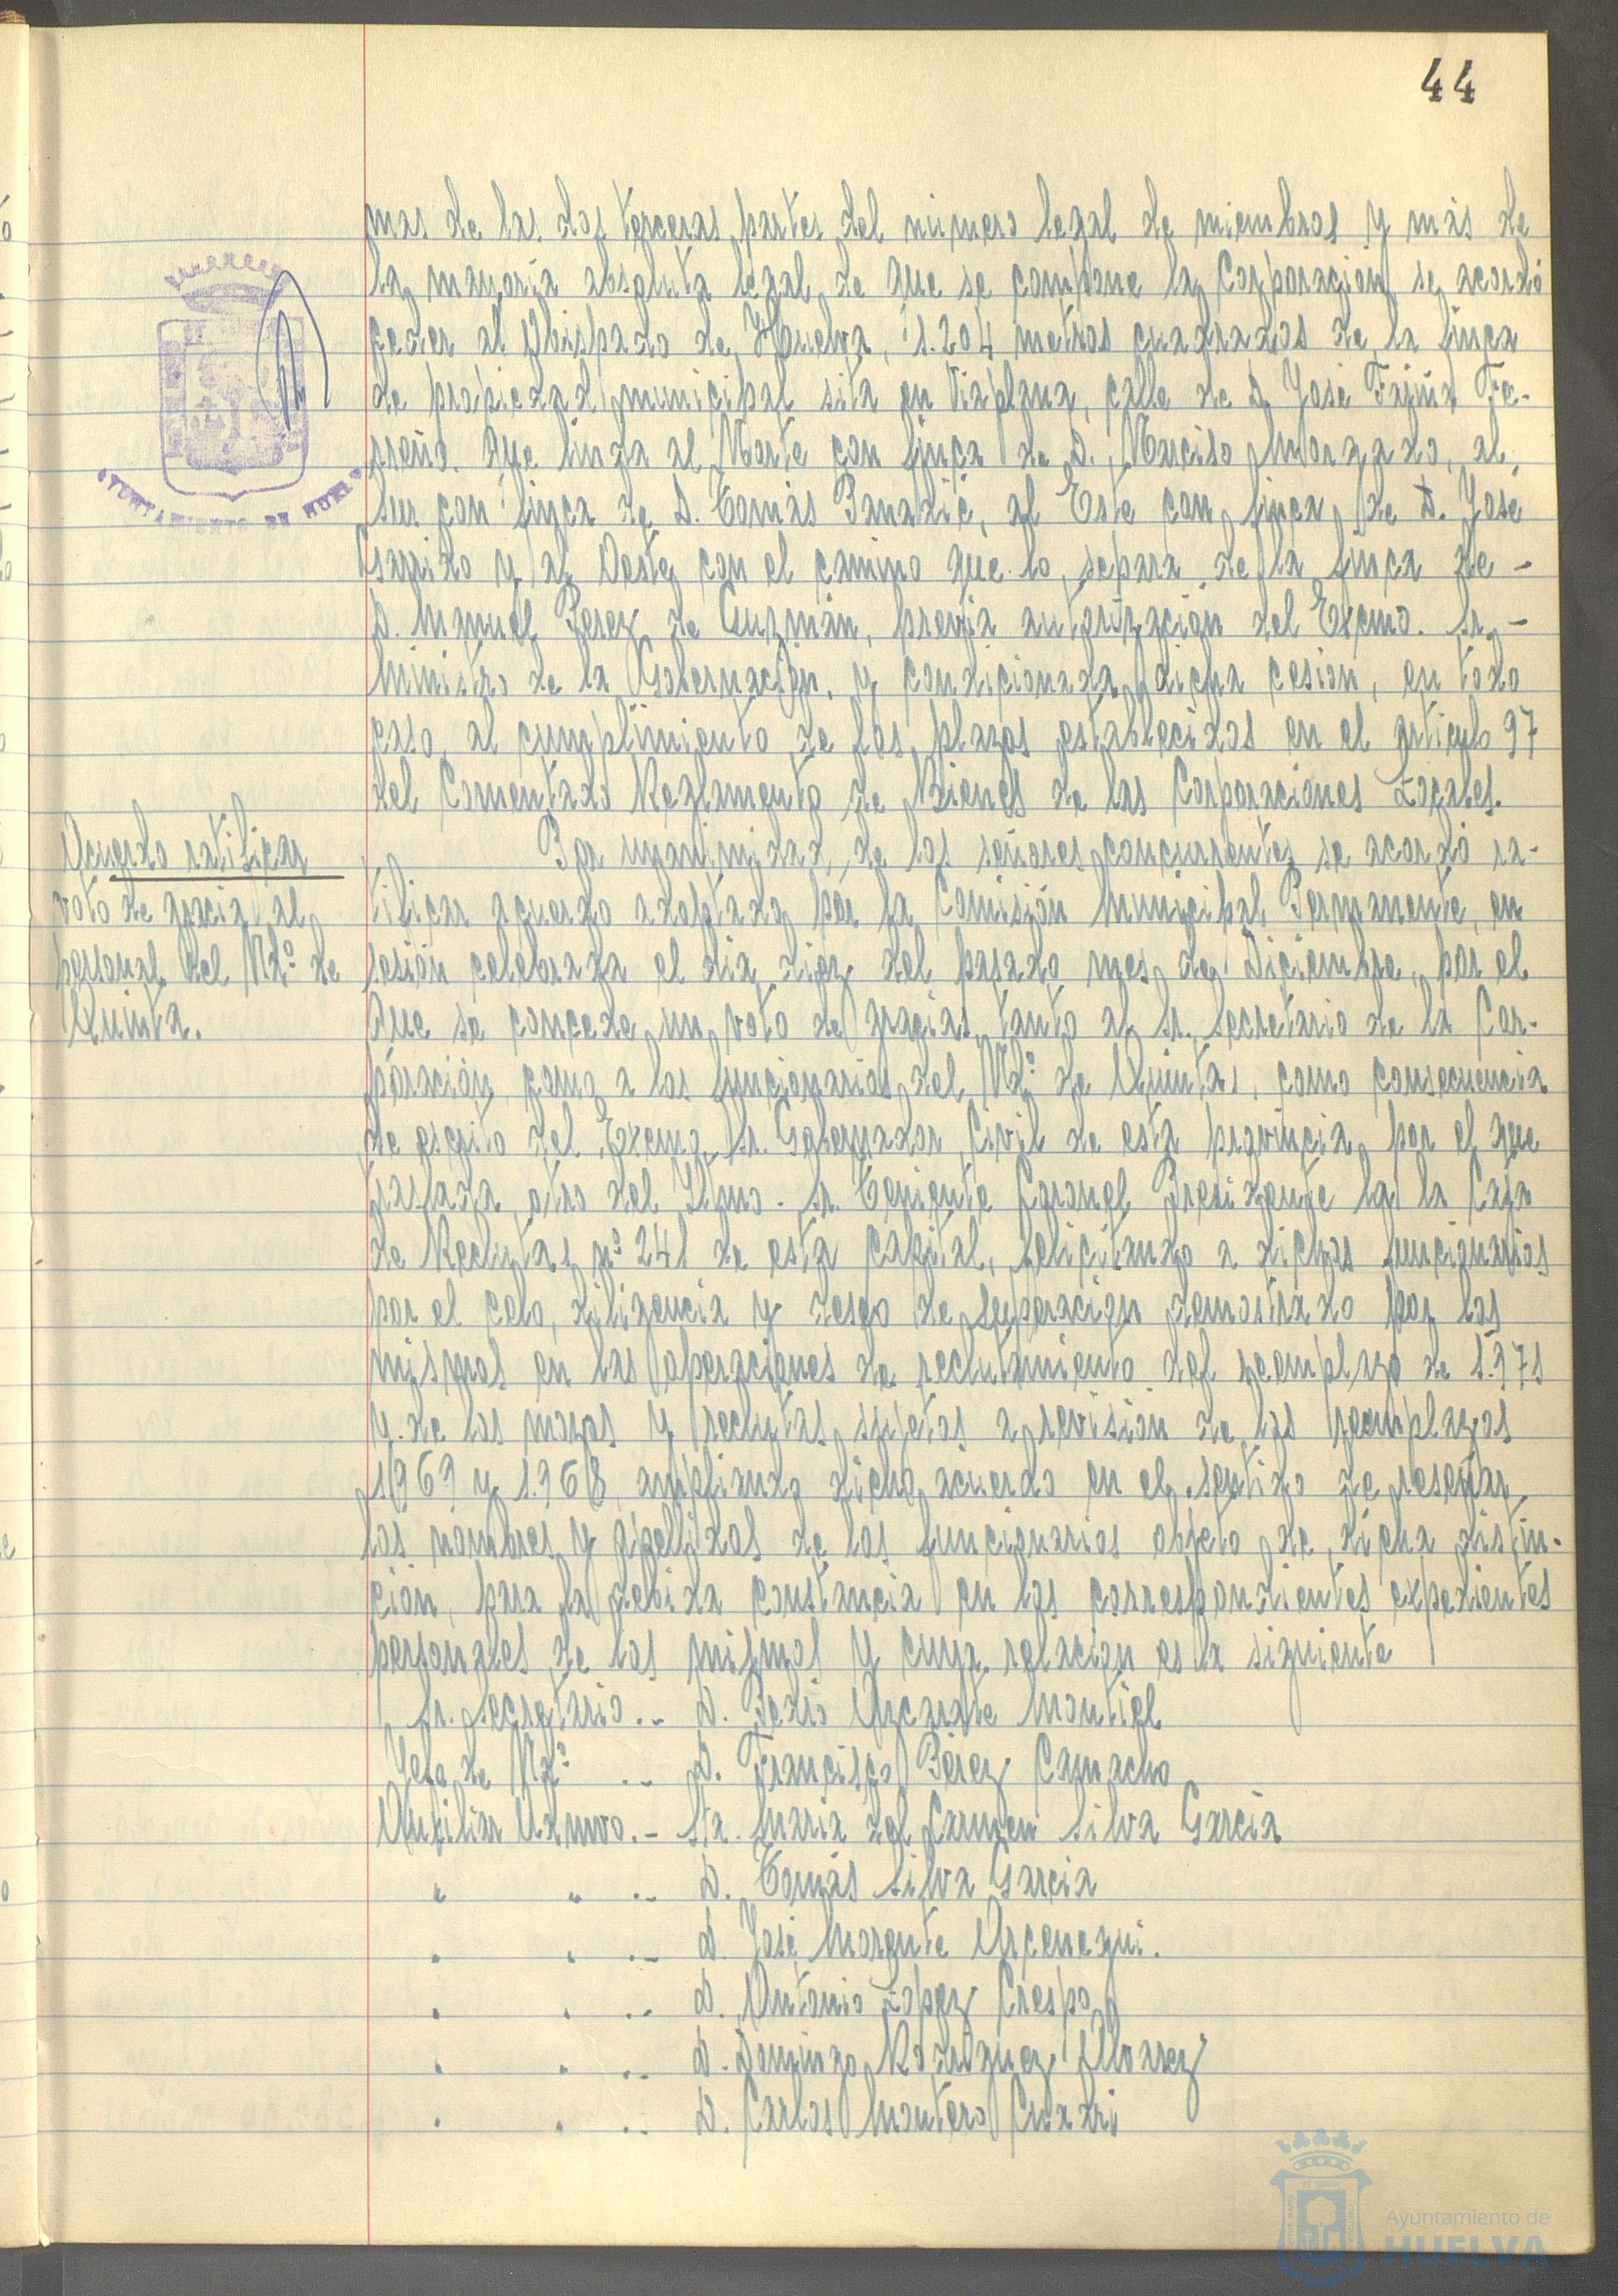 44
mas de las dos terceras partes del número legal de miembros y más de
la mayoría absoluta legal de que se compone la Corporación se acordó
ceder al Obispado de Huelva, 1.204 metros cuadrados de la finca
de propiedad municipal sita en Viaplana, calle de D. José Fariña Fe-
rreño. Que linda al Norte con finca de D. Narciso Morgado, al
sur con finca de D. Tomás Banadié, al Este con finca de D. José
Garrido y al Oeste con el camino que lo separa de la finca de -
D. Manuel Perez de Guzmán, previa autorización del Excmo. Sr. -
Ministro de la Gobernación, y condicionada dicha cesión, en todo
caso, al cumplimiento de los plazos establecidos en el artículo 97
del Comentado Reglamento de Bienes de las Corporaciones Locales.
Acuerdo ratificar
voto de gracia al
personal del Ndº de
Quinta.
Por unanimidad, de los señores concurrentes se acordó ra-
tificar acuerdo adoptado por la Comisión Municipal Permanente, en
sesión celebrada el día diez del pasado mes de Diciembre, por el
que se concede un voto de gracias tanto al Sr. Secretario de la Cor-
poración como a los funcionarios del Ndº de Quintas, como consecuencia
de escrito del Excmo. Sr. Gobernador Civil de esta provincia por el que
traslada otro del Iltmo. Sr. Teniente Coronel Presidente la la Caja
de Reclutas nº 241 de esta Capital, felicitando a dichos funcionarios
por el celo, diligencia y deseo de superación demostrado por los
mismos en las operaciones de reclutamiento del reemplazo de 1.971
y de los mozos y reclutas sujetos a revisión de los reemplazos
1969 y 1.968, ampliando dicho acuerdo en el sentido de reseñar
los nombres y apellidos de los funcionarios objeto de dicha distin-
ción, para la debida constancia en los correspondientes expedientes
personales de los mismos y cuya relación es la siguiente
Sr. Secretario.- D. Pedro Azcarate Montiel
Jefe de Ndº .- D. Francisco Pérez Camacho
Auxiliar Admvo.- Sta. María del Carmen Silva García
" " .- D. Tomás Silva García
" " .- D. José Morente Arcenegui.
" " .- D. Antonio López Crespo
" " .- D. Domingo Rodríguez Alvarez
" " .- D. Carlos Montero Cuadri
AYUNTAMIENTO DE HUELVA
Ayuntamiento de
HUELVA